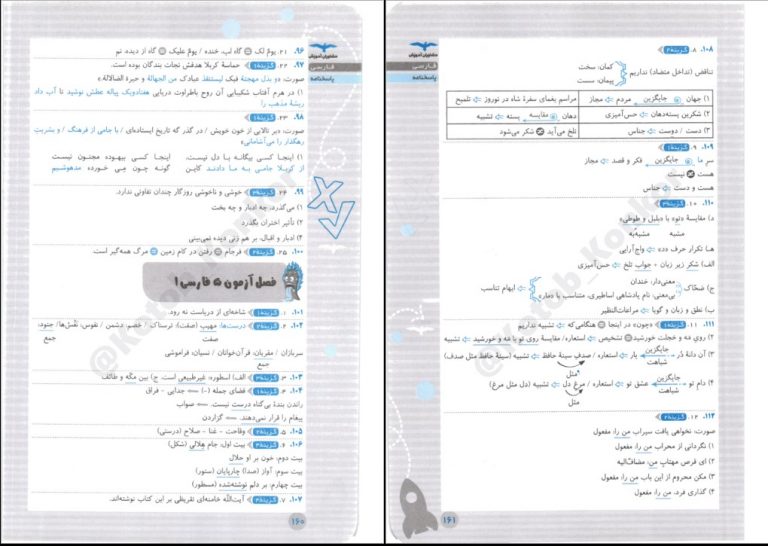 مشاوران آموزش
فارسی
پاسخنامه
۹۶. ۲۱. یومٌ لک = گاه لب، خنده / یومٌ علیک = گاه از دیده، نم
۹۷. ۲۲. گزینه۱ حماسهٔ کربلا هدفش نجات بندگان بود.
صورت: «و بذل مهجتهٔ فیک لیستنقذ عبادک من الجهالة و حیرة الضلالة.»
۱) در هرم آفتاب شکیبایی آن روح باطراوت دریایی هفتادویک پیاله عطش نوشید تا آب داد
ریشهٔ مذهب را
۹۸. ۲۳. گزینه۱
صورت: دیر تالابی از خون خویش / در گذر گه تاریخ ایستاده‌ای / با جامی از فرهنگ / و بشریت
رهگذار را می‌آشامانی»
۱) اینجا کسی بیگانه با دل نیست، اینجا کسی بیهوده مجنون نیست
از کربلا جامی به ما دادند کاین گونه چون می خورده مدهوشیم
۹۹. ۲۴. گزینه۳ خوشی و ناخوشی روزگار چندان تفاوتی ندارد.
۱) می‌گذرد، چه ادبار و چه بخت
۲) تأثیر اختران بگذرد
۴) ادبار و اقبال، بر هم زنی دیده نمی‌بینی
۱۰۰. ۲۵. گزینه۴ فرجام = رفتن در کام زمین = مرگ همه‌گیر است.
فصل آزمون ۵ فارسی ۱
۱۰۱. ۱. گزینه۲ شاخه‌ای از دریاست نه رود.
۱۰۲. ۲. گزینه۲ درست‌ها: مهیب (صفت): ترسناک / خصم: دشمن / نفوس: نَفْس‌ها/ جنود:
صفت جمع
سربازان / مقریان: قرآن‌خوانان / نسیان: فراموشی
جمع
۱۰۳. ۳. گزینه۳ الف) اسطوره: غیرطبیعی است. ج) بین مکّه و طائف
۱۰۴. ۴. گزینه۱ فضای جمله (-) جدایی - فراق
راندن بندهٔ بی‌گناه درست نیست. صواب
پیغام را قرار نمی‌دهند. گزاردن
۱۰۵. ۵. گزینه۲ وقاحت - غنا - صلاح (درستی)
۱۰۶. ۶. گزینه۴ بیت اول: جام هلالی (شکل)
بیت دوم: خون بر او حلال
بیت سوم: آواز (صدا) چارپایان (ستور)
بیت چهارم: بر دلم نوشته‌شده (مسطور)
۱۰۷. ۷. گزینه۴ آیت‌الله خامنه‌ای تقریظی بر این کتاب نوشته‌اند.
۱۶۰
مشاوران آموزش
فارسی
پاسخنامه
۱۰۸. ۸. گزینه۴
کمان: سخت
تناقض (تداخل متضاد) نداریم
پیمان: سست
۱) جهان جایگزین مردم مجاز مراسم یغمای سفرهٔ شاه در نوروز تلمیح
۲) شکرین پسته‌دهان حس‌آمیزی دهان مقایسه پسته تشبیه
۳) دست / دوست جناس تلخ می‌آید شکر می‌شود
۱۰۹. ۹. گزینه۱
سر ما جایگزین فکر و قصد مجاز
هست نیست
هست و دست جناس
۱۱۰. ۱۰. گزینه۳
د) مقایسهٔ «تو» با «بلبل و طوطی»
مشبه مشبه‌به
هـ) تکرار حرف «د» واج‌آرایی
الف) شکر زیر زبان + جواب تلخ حس‌آمیزی
ج) ضحّاک معنی‌دار: خندان
بی‌معنی: نام پادشاهی اساطیری، متناسب با «مار» ایهام تناسب
ب) نطق و زبان و گویا مراعات‌النظیر
۱۱۱. ۱۱. گزینه۱ «چون» در اینجا = هنگامی‌که تشبیه نداریم
۲) روی مَه و خجلت خورشید تشخیص استعاره/ مقایسهٔ روی تو با مَه و خورشید تشبیه
۳) آن دانهٔ دُر جایگزین یار استعاره / صدفِ سینهٔ حافظ تشبیه (سینهٔ حافظ مثل صدف)
شباهت
مثل
۴) دام تو جایگزین عشق تو استعاره / مرغِ دل تشبیه (دل مثل مرغ)
شباهت
مثل
۱۱۲. ۱۲. گزینه۲
صورت: نخواهی یافت سیراب من را: مفعول
۱) نگردانی از محراب من را: مفعول
۲) ای قرص مهتابِ من: مضاف‌الیه
۳) مکن محروم از این باب من را: مفعول
۴) گذاری فرد. من را: مفعول
۱۶۱